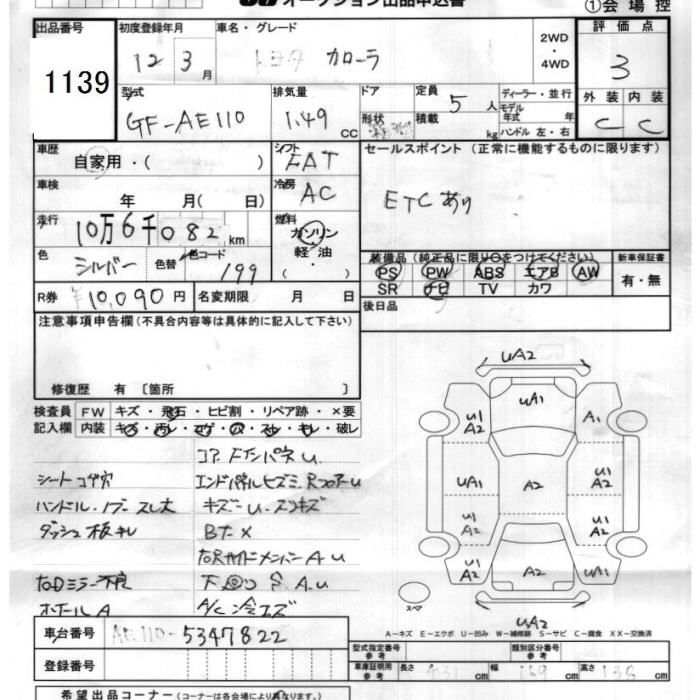 オークション出品申込書
①会場控
出品番号 初度登録年月 車名・グレード 2WD ・ 4WD 評価点
1139 12 3月 トヨタ カローラ 3
型式 排気量 ドア 定員 ディーラー・並行 外装 内装
GF-AE110 1.49 cc 形状 積載 5人 kg モデル年式 年 ハンドル 左・右 C C
車歴 シフト セールスポイント (正常に機能するものに限ります)
自家用・( ) FAT
車検 冷房
年 月(日) AC ETCあり
走行 燃料
10万6千082km ガソリン・軽油 ( ・ )
色 色替 色コード 装備品 (純正品に限り○をつけてください) 新車保証書
シルバー 199 PS PW ABS エアB AW 有・無
SR ナビ TV カワ
R券 ¥10,090円 名変期限 月 日 後日品
注意事項申告欄 (不具合内容等は具体的に記入して下さい)
修復歴 有 〔箇所
検査員 FW キズ・飛石・ヒビ割・リペア跡・×要
記入欄 内装 キズ・汚レ・コゲ・穴・スレ・モレ・破レ
コアF ナンパネ U.
シートコゲ穴 エンドパネルヒズミ RフロアーU
ハンドル・ノブ・スレ大 キズ U・スリキズ
ダッシュ板キレ BT-X
右RサイドメンバーA U
右Dミラー不良 下廻り S.A.U
ホイールA A/C冷エズ
車台番号 AE110-5347822
登録番号
希望出品コーナー (コーナーは各会場により異なります。)
UA2
UA1
U1 A2
A1
UA1
A2
U1 A2
U1 A2
U1 A2
A2
A2
UA1
UA2
スペア
A－キズ E－エクボ U－凹み W－補修跡 S－サビ C－腐食 XX－交換済
型式指定番号 参考 類別区分番号 参考
車庫証明用 参考 長さ 431cm 幅 169cm 高さ 138cm